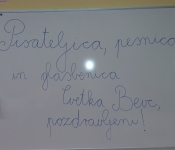 Pisateljica, pesnica
in glasbenica
Cvetka Bevc,
pozdravljeni!